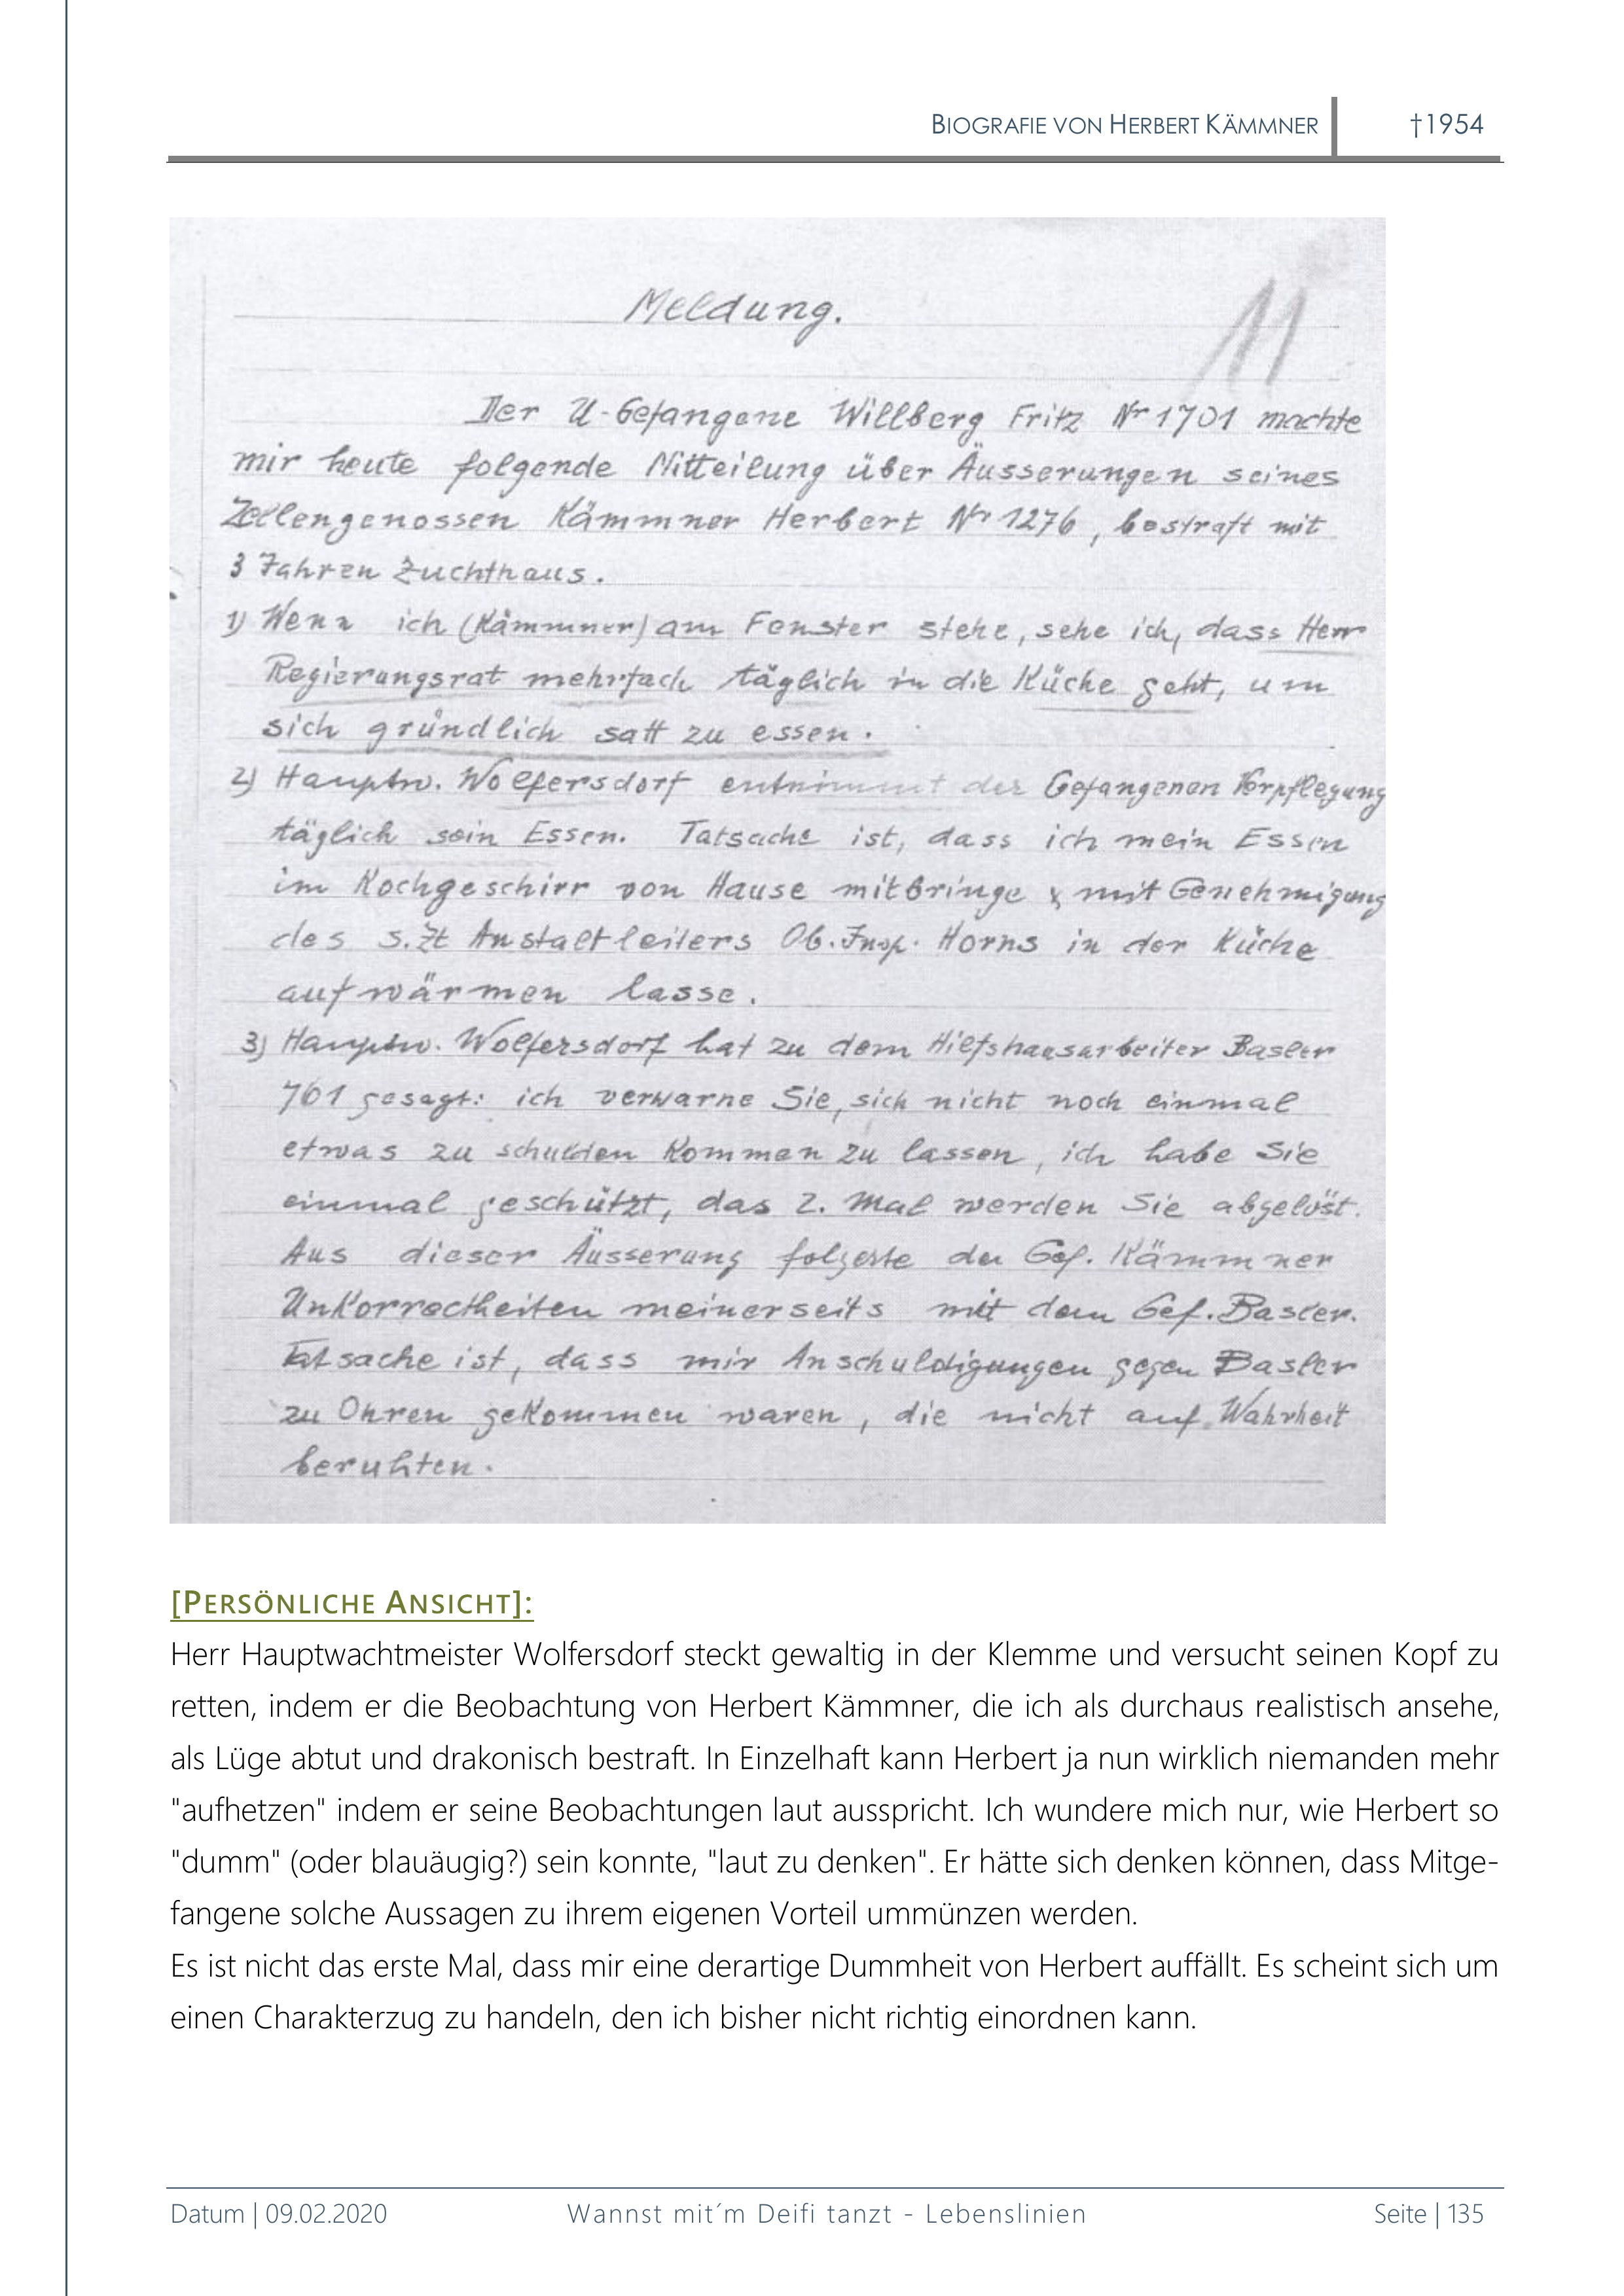 BIOGRAFIE VON HERBERT KÄMMNER †1954
Meldung.
11
Der U-Gefangene Willberg Fritz Nr 1701 machte
mir heute folgende Mitteilung über Äusserungen seines
Zellengenossen Kämmner Herbert Nr 1276, bestraft mit
3 Jahren Zuchthaus.
1) Wenn ich (Kämmner) am Fenster stehe, sehe ich, dass Herr
Regierungsrat mehrfach täglich in die Küche geht, um
sich gründlich satt zu essen.
2) Hauptw. Wolfersdorf entnimmt der Gefangenen Verpflegung
täglich sein Essen. Tatsache ist, dass ich mein Essen
im Kochgeschirr von Hause mitbringe & mit Genehmigung
des s.Zt Anstaltleiters Ob.Insp. Horns in der Küche
aufwärmen lasse.
3) Hauptw. Wolfersdorf hat zu dem Hilfshausarbeiter Basler
761 gesagt: ich verwarne Sie, sich nicht noch einmal
etwas zu schulden kommen zu lassen, ich habe Sie
einmal geschützt, das 2. Mal werden Sie abgelöst.
Aus dieser Äusserung folgerte der Gef. Kämmner
Unkorrectheiten meinerseits mit dem Gef. Basler.
Tatsache ist, dass mir Anschuldigungen gegen Basler
zu Ohren gekommen waren, die nicht auf Wahrheit
beruhten.
[PERSÖNLICHE ANSICHT]:
Herr Hauptwachtmeister Wolfersdorf steckt gewaltig in der Klemme und versucht seinen Kopf zu
retten, indem er die Beobachtung von Herbert Kämmner, die ich als durchaus realistisch ansehe,
als Lüge abtut und drakonisch bestraft. In Einzelhaft kann Herbert ja nun wirklich niemanden mehr
"aufhetzen" indem er seine Beobachtungen laut ausspricht. Ich wundere mich nur, wie Herbert so
"dumm" (oder blauäugig?) sein konnte, "laut zu denken". Er hätte sich denken können, dass Mitge-
fangene solche Aussagen zu ihrem eigenen Vorteil ummünzen werden.
Es ist nicht das erste Mal, dass mir eine derartige Dummheit von Herbert auffällt. Es scheint sich um
einen Charakterzug zu handeln, den ich bisher nicht richtig einordnen kann.
Datum | 09.02.2020 Wannst mit´m Deifi tanzt - Lebenslinien Seite | 135